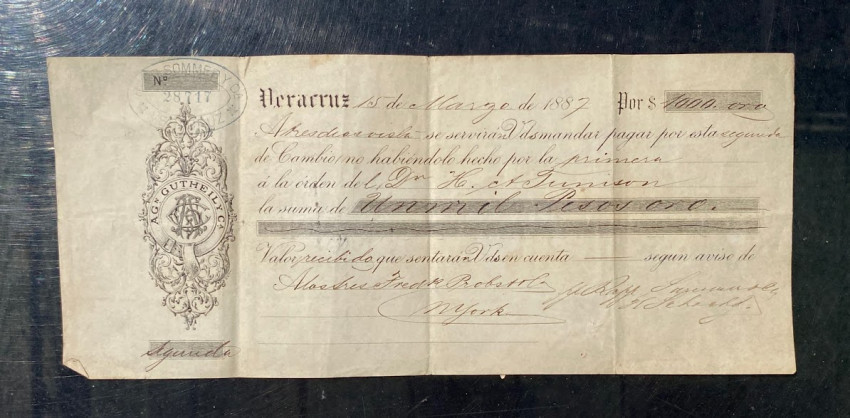 Nº
SOMMER Y Cª
28717
AGN GUTHEIL Y Cª
Segunda
Veracruz 15 de Marzo de 1887 Por $ 1000.. oro
A tres dias vista se servirán Vds mandar pagar por esta segunda
de Cambio (no habiéndolo hecho por la primera
á la órden del Dn H. A. Tunison
la suma de Un mil Pesos oro.
Valor recibido que sentarán Vds en cuenta segun aviso de
A los Sres Fredk Probst &
N York